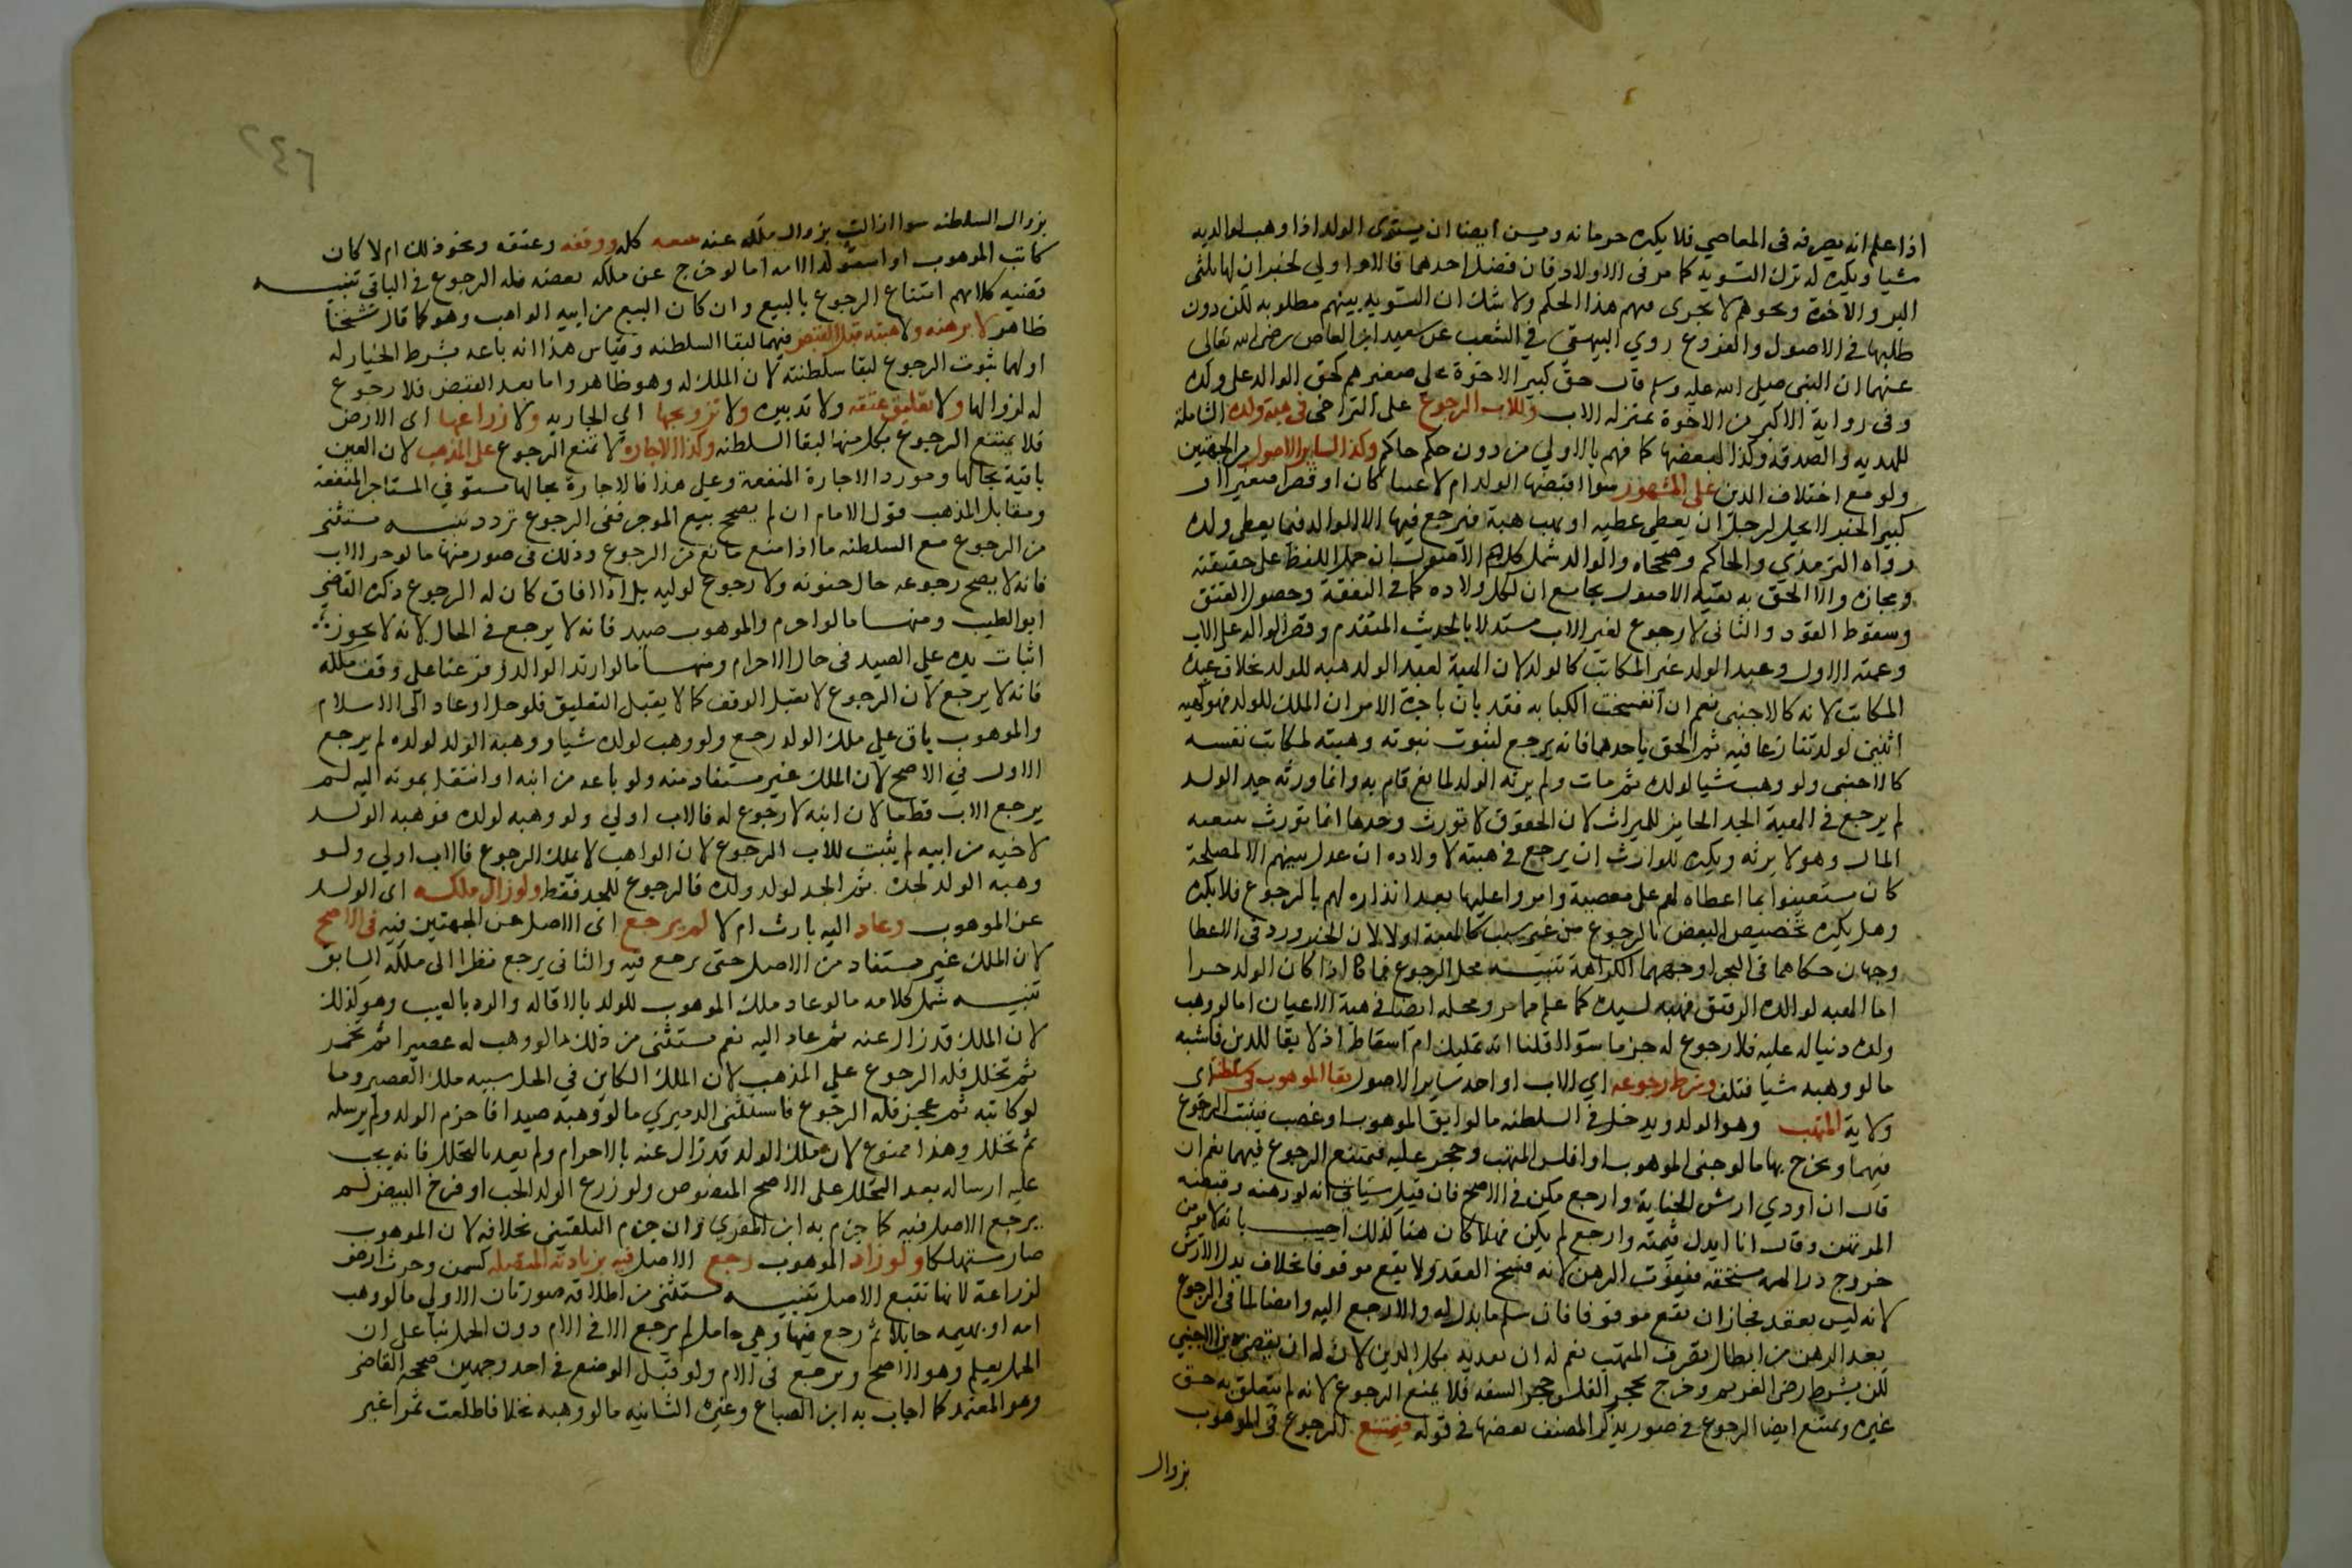 اذا علم انه يصرفه فى المعاصي فلا يكره حرمانه ويسن ايضا ان يستوى الولد اذا وهب لوالديه
شيا ويكره له ترك التسويه كما مر فى الاولاد فان فضل احدهما فالام اولي لخبر ان لها ثلثى
البر والاخوة ونحوهم لا يجرى فيهم هذا الحكم ولا شك ان التسويه بينهم مطلوبه لكن دون
طلبها فى الاصول والفروع روي البيهقى في الشعب عن سعيد ابن العاص رضى الله تعالى
عنهما ان النبى صلى الله عليه وسلم قال حق كبير الاخوة على صغيرهم كحق الوالد على ولده
وفى رواية الاكبر من الاخوة بمنزله الاب وللاب الرجوع على التراخى فى هبة ولده الشاملة
للهديه والصدقة وكذا لبعضها كما فهم بالاولي من دون حكم حاكم وكذا لساير الاصول من الجهتين
ولو مع اختلاف الدين على المشهور سوا اقبضها الولد ام لا غنيا كان او فقيرا صغيرا او
كبيرا لخبر لا يحل لرجل ان يعطي عطيه او يهب هبة فيرجع فيها الا الوالد فيما يعطى ولده
رواه الترمذي والحاكم وصححاه والوالد شمل كل الاصول ان حمل اللفظ على حقيقته
ومجازه والا الحق به بقية الاصول بجامع ان لكل ولاده كما فى النفقة وحصول العتق
وسقوط القود والثانى لا رجوع لغير الاب مستدلا بالحديث المتقدم وقصر الوالد على الاب
وعممه الاول وعبد الولد غير المكاتب كالولد لان الهبة لعبد الولد هبه للولد بخلاف عبده
المكاتب لانه كالاجنبى نعم ان انفسخت الكتابه فقد بان باخرة الامر ان الملك للولد فهو كهبه
اثنين لولد تنازعا فيه ثم الحق باحدهما فانه يرجع لثبوت نبوته وهبته لمكاتب نفسه
كالاجنبى ولو وهب شيا لولده ثم مات ولم يرثه الولد لمانع قام به وانما ورثه جد الولد
لم يرجع في الهبة الجد الحايز للميراث لان الحقوق لا تورث وحدها انما تورث بتبعيه
المال وهو لا يرثه ويكره للوالد ان يرجع في هبته لاولاده ان عدل بينهم الا لمصلحة
كان يستعينوا بما اعطاه لهم على معصية واصروا عليها بعد انذاره لهم بالرجوع فلا يكره
وهل يكره تخصيص البعض بالرجوع من غير سبب كالهبة او لا لان الخبر ورد فى الاعطا
وجهان حكاهما فى البحر اوجههما الكراهة تنبيــه محل الرجوع فيما اذا كان الولد حرا
اما الهبه لولده الرقيق فهبه لسيده كما علم مما مر ومحله ايضا فى هبة الاعيان اما لو وهب
ولده دينا له عليه فلا رجوع له جزما سوا قلنا انه تمليك ام اسقاط اذ لا بقا للدين فاشبه
ما لو وهبه شيا فتلف وشرط رجوعه اي الاب او احد ساير الاصول بقا الموهوب فى سلطنة اى
ولاية المتهب وهو الولد ويدخل فى السلطنه ما لو ابق الموهوب او غصب فيثبت الرجوع
فيهما ويخرج بها ما لو جنى الموهوب او افلس المتهب وحجر عليه فيمتنع الرجوع فيهما نعم ان
قال انا اودي ارش الجناية وارجع مكن فى الاصح فان قيل سياتى انه لو رهنه وقبضه
المرتهن وقال انا ابدل قيمته وارجع لم يمكن فهلا كان هنا كذلك اجيب بانه لا يومن
خروج دراهمه مستحقه فيفوت الرهن لانه فسخ العقد ولا يقع موقوفا بخلاف بدل الارش
لانه ليس بعقد فجاز ان يقع موقوفا فان سلم ما بذل له والا رجع اليه وايضا لما فى الرجوع
بعد الرهن من ابطال تصرف المتهب نعم له ان يفديه بكل الدين لان له ان يقضى دين الاجنبي
لكن بشرط رضى الغريم وخرج بحجر الفلس حجر السفه فلا يمنع الرجوع لانه لم يتعلق به حق
غيره ويمتنع ايضا الرجوع فى صور يذكر المصنف بعضها فى قوله فيمتنع الرجوع فى الموهوب
بزوال
٢٤٦
بزوال السلطنه سوا ازالت بزوال ملكه عنه ببيعه كله ووقفه وعتقه ونحو ذلك ام لا كان
كاتب الموهوب او استولد الامه اما لو خرج عن ملكه بعضه فله الرجوع فى الباقي تنبيــه
قضيه كلامهم امتناع الرجوع بالبيع وان كان البيع من ابيه الواهب وهو كما قال شيخنا
ظاهر لا برهنه ولا هبته قبل القبض فيهما لبقا السلطنه وقياس هذا انه باعه بشرط الخيار له
او لهما ثبوت الرجوع لبقا سلطنته لان الملك له وهو ظاهر واما بعد القبض فلا رجوع
له لزوالها ولا تعليق عتقه ولا تدبيره ولا تزويجها اي الجاريه ولا زراعتها اى الارض
فلا يمتنع الرجوع بكل منها لبقا السلطنه وكذا الاجاره لا تمنع الرجوع على المذهب لان العين
باقية بحالها ومورد الاجارة المنفعة وعلى هذا فالاجارة بحالها يستوفي المستاجر المنفعة
ومقابل المذهب قول الامام ان لم يصح بيع الموجر ففى الرجوع تردد تنبيــه يستثنى
من الرجوع مع السلطنه ما اذا منع مانع من الرجوع وذلك فى صور منها ما لو جن الاب
فانه لا يصح رجوعه حال جنونه ولا رجوع لوليه بل اذا افاق كان له الرجوع ذكره القاضى
ابو الطيب ومنها ما لو احرم والموهوب صيد فانه لا يرجع فى الحال لانه لا يجوز
اثبات يده على الصيد فى حال الاحرام ومنها ما لو ارتد الوالد وفرعنا على وقف ملكه
فانه لا يرجع لان الرجوع لا يقبل الوقف كما لا يقبل التعليق فلو حل او عاد الى الاسلام
والموهوب باق على ملك الولد رجع ولو وهب لولده شيا ووهبه الولد لولده لم يرجع
الاول في الاصح لان الملك غير مستفاد منه ولو باعه من ابنه او انتقل بموته اليه لم
يرجع الاب قطعا لان ابنه لا رجوع له فالاب اولي ولو وهبه لولده فوهبه الولد
لاخيه من ابيه لم يثبت للاب الرجوع لان الواهب لا يملك الرجوع فالاب اولي ولو
وهبه الولد لجده ثم الجد لولد ولده فالرجوع للجد فقط ولو زال ملكه اى الولد
عن الموهوب وعاد اليه بارث ام لا لم يرجع اى الاصل من الجهتين فيه فى الاصح
لان الملك غير مستفاد من الاصل حتى يرجع فيه والثانى يرجع نظرا الى ملكه السابق
تنبيــه شمل كلامه ما لو عاد ملك الموهوب للولد بالاقاله والرد بالعيب وهو كذلك
لان الملك قد زال عنه ثم عاد اليه نعم يستثنى من ذلك ما لو وهب له عصيرا ثم تخمر
ثم تخلل فله الرجوع على المذهب لان الملك الكاين في الخل سببه ملك العصير وما
لو كاتبه ثم عجز فله الرجوع فاستثنى الدميري ما لو وهبه صيدا فاحرم الولد ولم يرسله
ثم تحلل وهذا ممنوع لان ملك الولد قد زال عنه بالاحرام ولم يعد بالتحلل فانه يجب
عليه ارساله بعد التحلل على الاصح المنصوص ولو زرع الولد الحب او فرخ البيض لم
يرجع الاصل فيه كما جزم به ابن المقري وان جزم البلقينى بخلافه لان الموهوب
صار مستهلكا ولو زاد الموهوب رجع الاصل فيه بزيادته المتصله كسمن وحرث ارض
لزراعة لانها تتبع الاصل تنبيــه يستثنى من اطلاقه صورتان الاولي ما لو وهب
امه او بهيمه حايلا ثم رجع فيها وهي حامل لم يرجع الا في الام دون الحمل بنا على ان
الحمل يعلم وهو الاصح ويرجع فى الام ولو قبل الوضع فى احد وجهين صححه القاضى
وهو المعتمد كما اجاب به ابن الصباغ وغيره الثانيه ما لو وهبه نخلا فاطلعت ثمرا غير